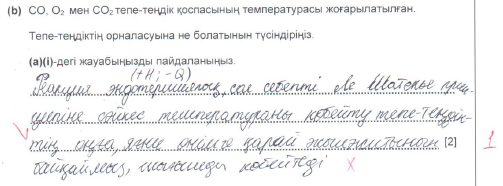 (b) CO, O₂ мен CO₂ тепе-теңдік қоспасының температурасы жоғарылатылған.
Тепе-теңдіктің орналасуына не болатынын түсіндіріңіз.
(a)(i)-дегі жауабыңызды пайдаланыңыз.
(+H; -Q)
Реакция эндотермиялық, сол себепті Ле Шателье прин-
ципіне сәйкес температураны көбейту тепе-теңдік-
тің оңға, яғни өнімге қарай жылжитынын [2]
байқаймыз, көбейтеді
1